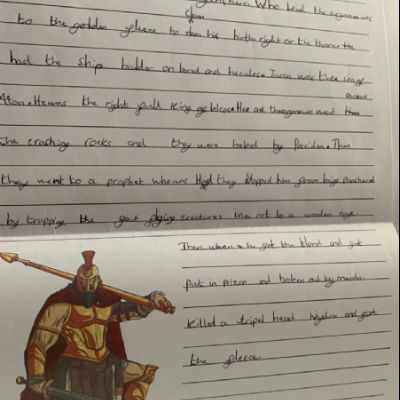 Who lead the argonauts
to the golden fleece to claim his birth right or the throne the
had the ship bilder on bord and heculeese Jason was the son of
the right full King go
the crashing rocks and they were helped by Posidon. Then
they went to a prophet whenwer they stopped him from being punished
by trapping the goat flying creatures in a net to a wooden cage.
Then when he got the Island and got
put in prizon and broken out by meada.
Killed a tripel head hydra and got
the fleece